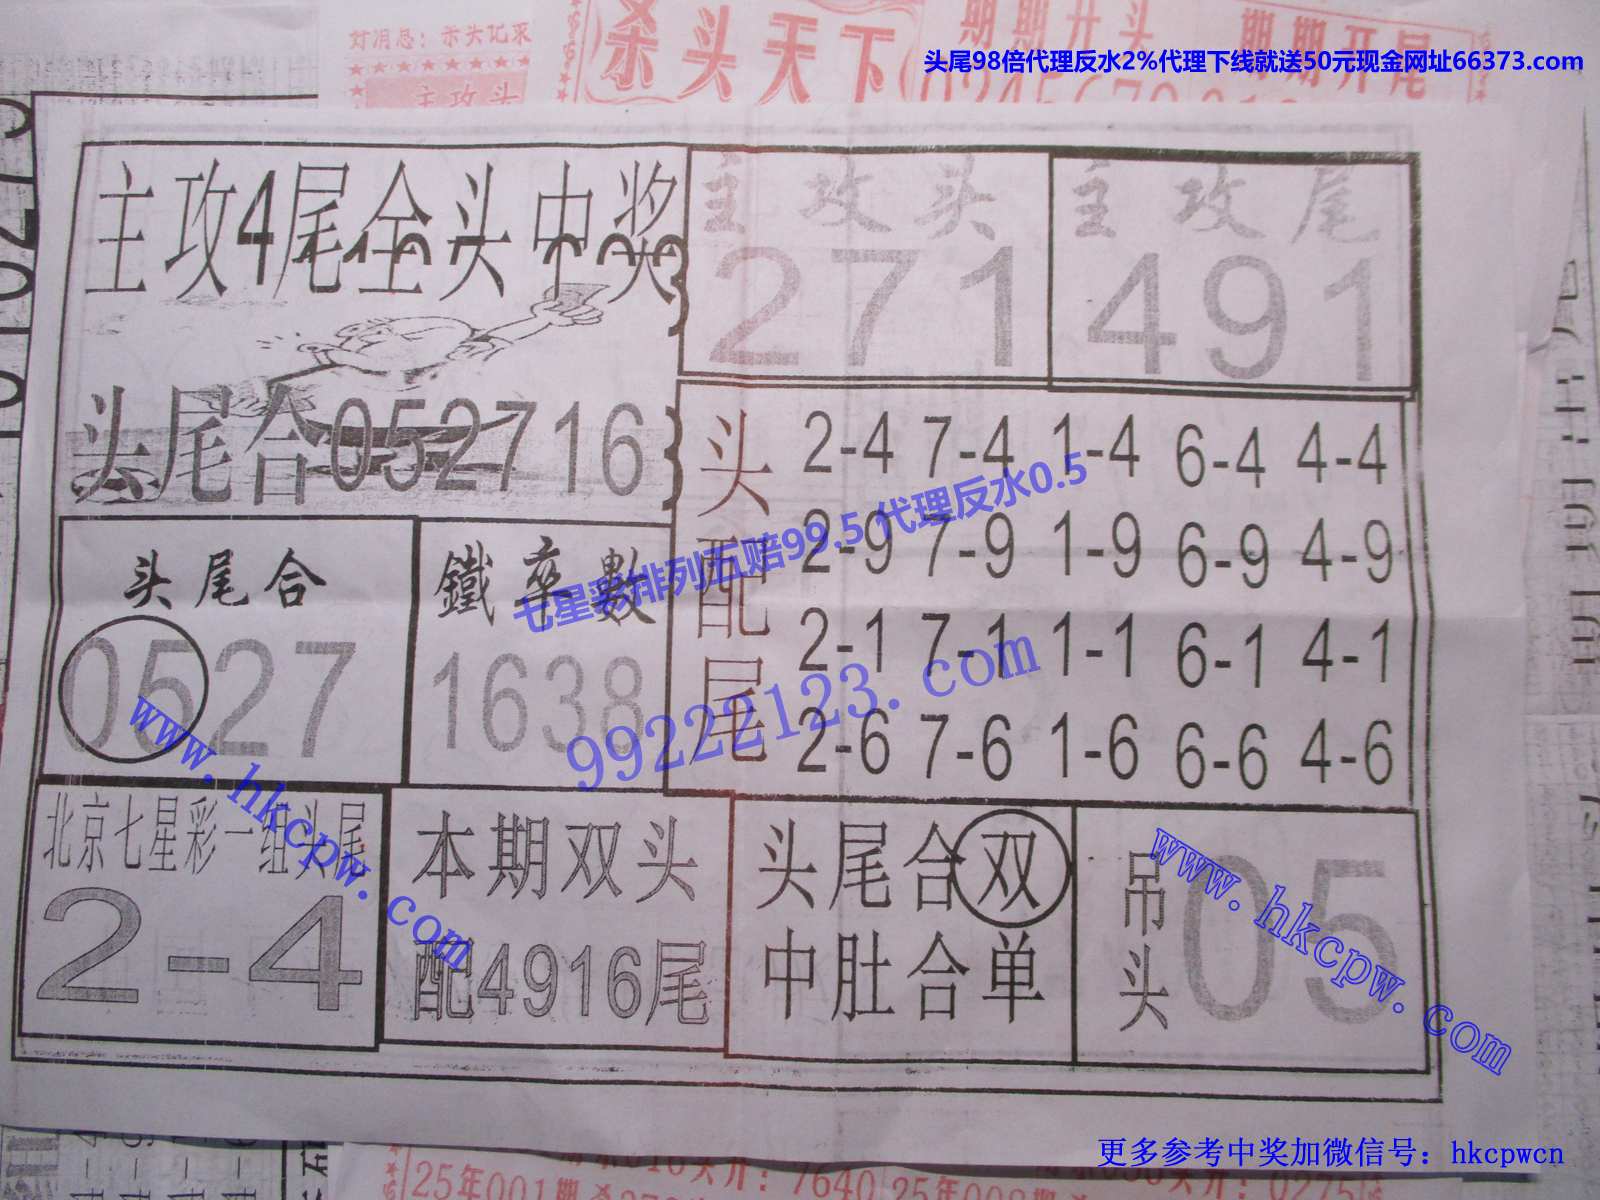 好消息：杀头记录
杀头天下
期期开头
期期开尾
头尾98倍代理反水2%代理下线就送50元现金网址66373.com
主攻头
主攻4尾全头中奖
主攻头
271
主攻尾
491
头尾合052716
头配尾
2-4 7-4 1-4 6-4 4-4
2-9 7-9 1-9 6-9 4-9
2-1 7-1 1-1 6-1 4-1
2-6 7-6 1-6 6-6 4-6
七星彩排列五赔99.5代理反水0.5
头尾合
0527
鐵率數
1638
99222123.com
www.hkcpw.com
北京七星彩一组头尾
2-4
本期双头
配4916尾
头尾合双
中肚合单
吊头
05
www.hkcpw.com
更多参考中奖加微信号：hkcpwcn
25年001期杀